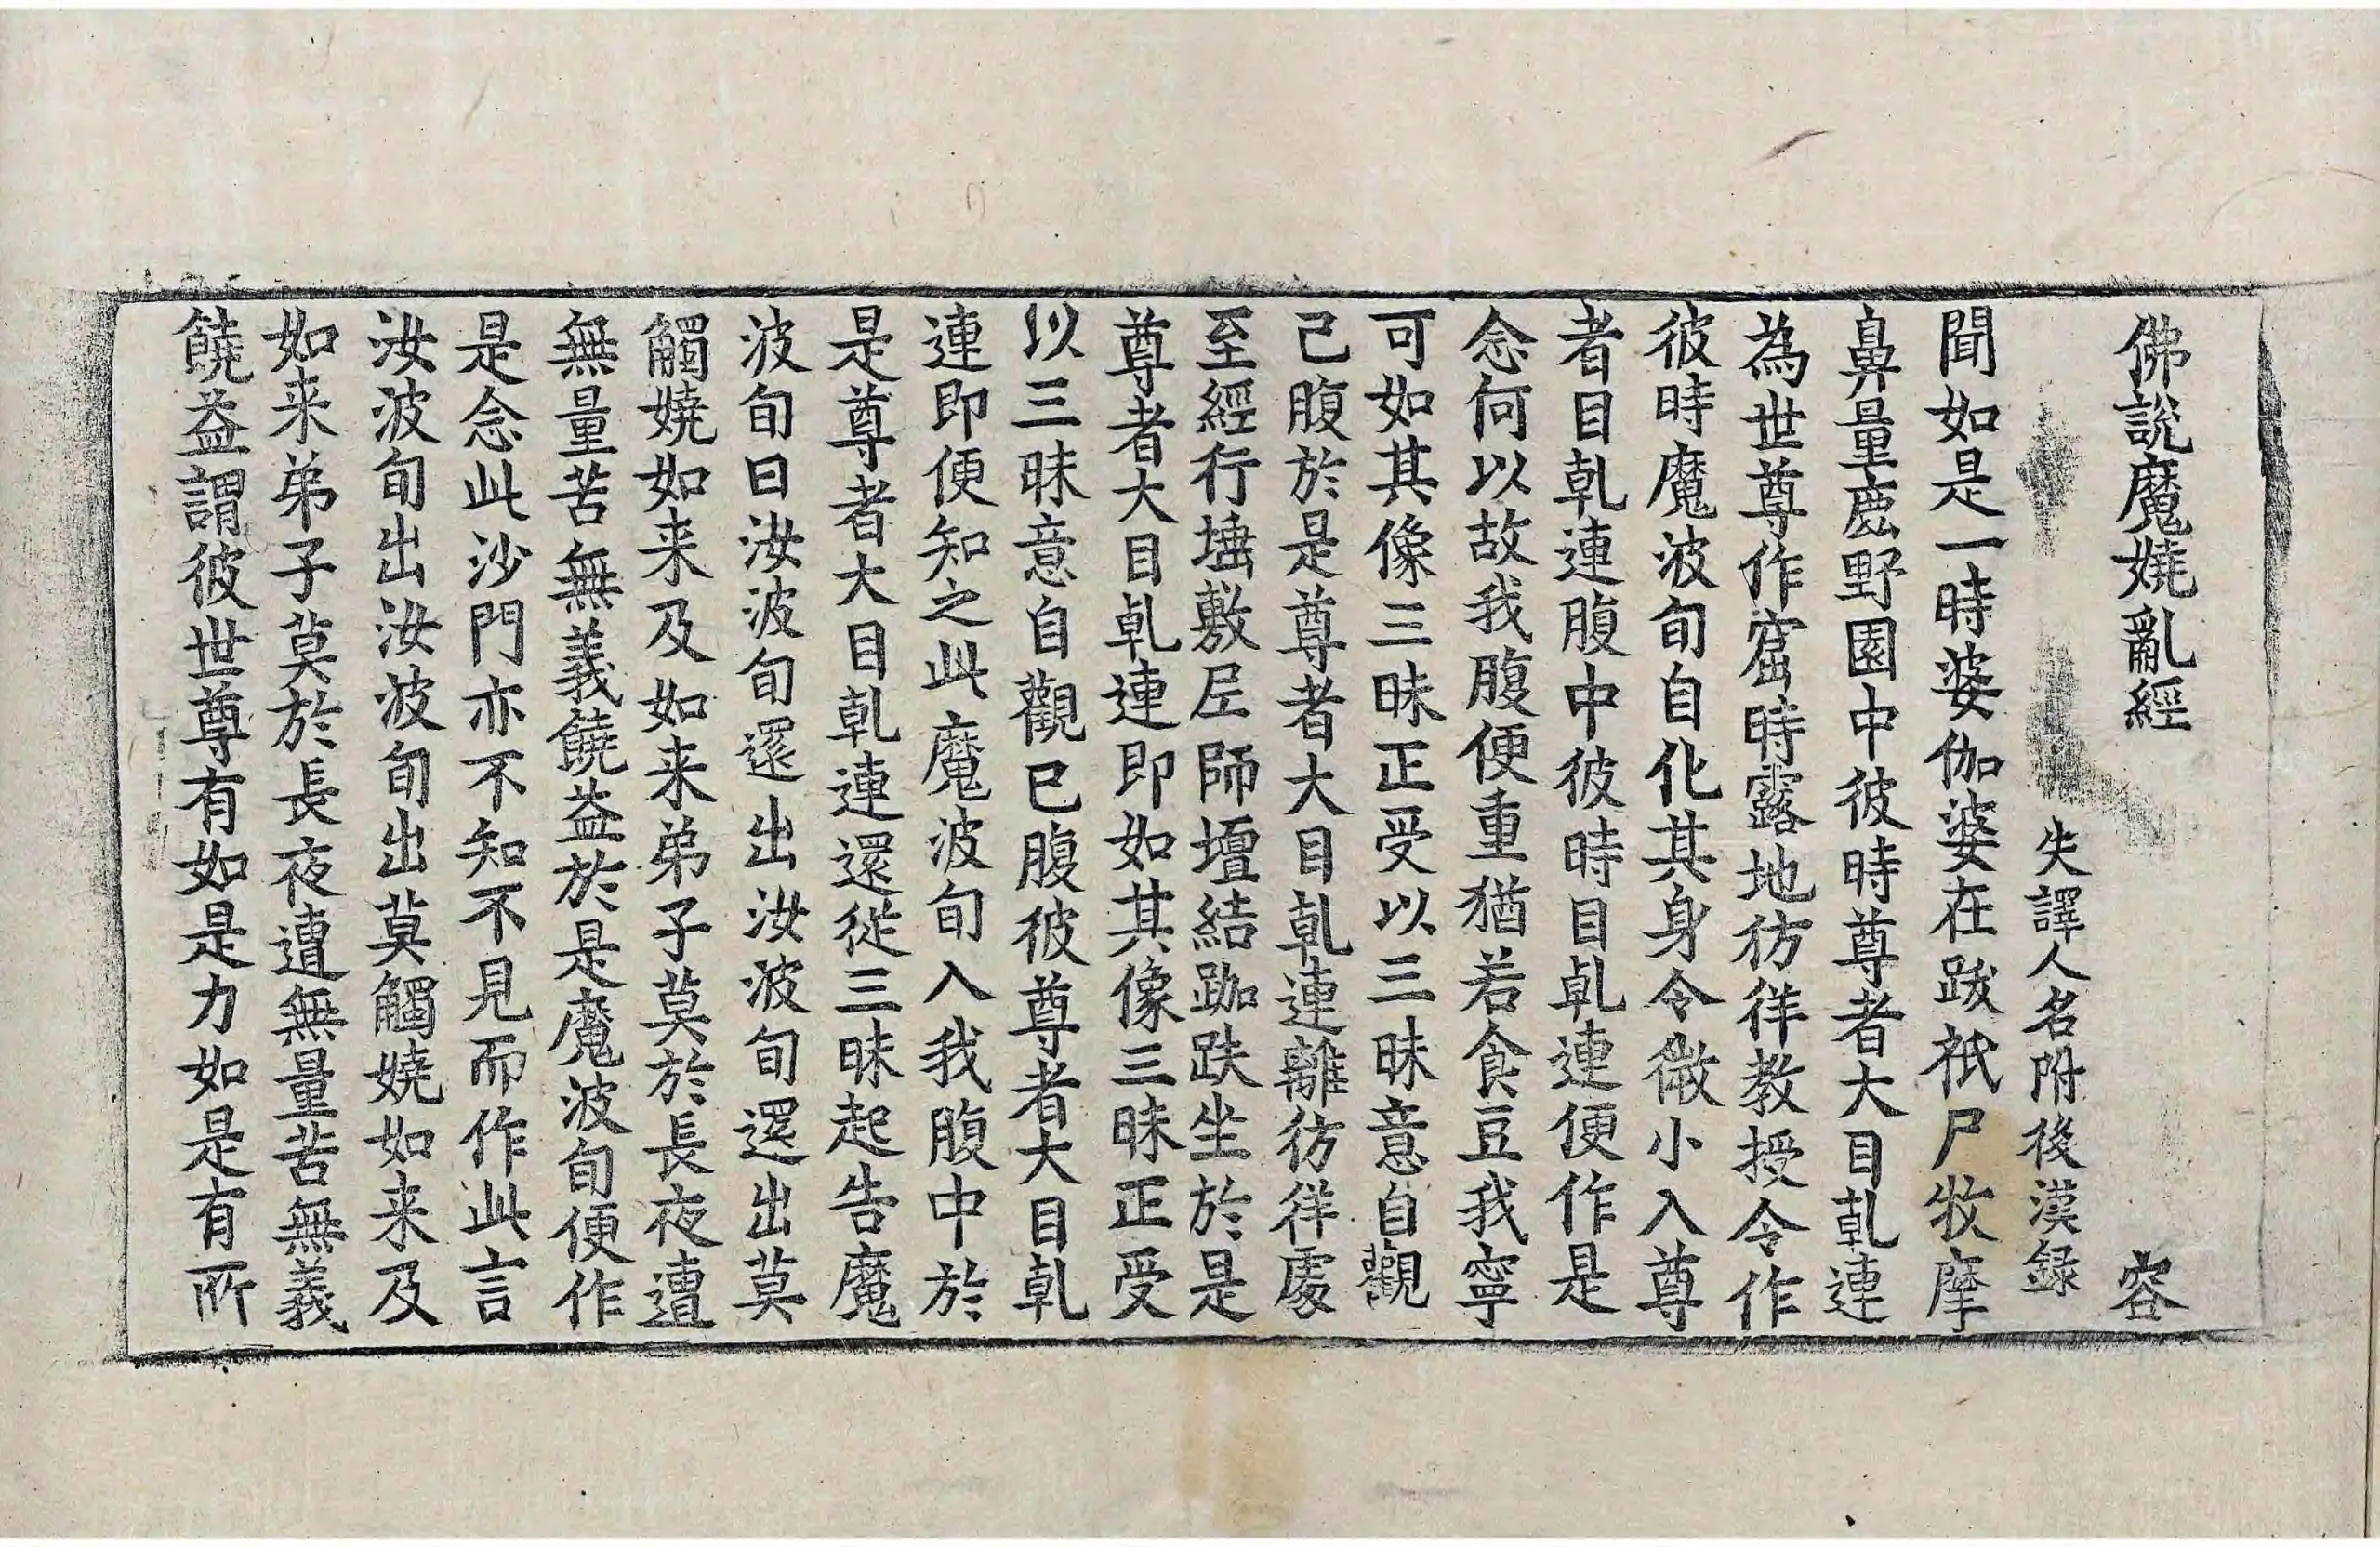 佛說魔嬈亂經 容
失譯人名附後漢録
聞如是一時婆伽婆在跋祇尸牧摩
鼻量鹿野園中彼時尊者大目乹連
為世尊作窟時露地彷徉教授令作
彼時魔波旬自化其身令微小入尊
者目乹連腹中彼時目乹連便作是
念何以故我腹便重猶若食豆我寧
可如其像三昧正受以三昧意自觀
己腹於是尊者大目乹連離彷徉處
至經行埵敷𡋲師壇結跏趺坐於是
尊者大目乹連即如其像三昧正受
以三昧意自觀已腹彼尊者大目乹
連即便知之此魔波旬入我腹中於
是尊者大目乹連還從三昧起告魔
波旬曰汝波旬還出汝波旬還出莫
觸嬈如来及如来弟子莫於長夜遭
無量苦無義饒益於是魔波旬便作
是念此沙門亦不知不見而作此言
汝波旬出汝波旬出莫觸嬈如来及
如来弟子莫於長夜遭無量苦無義
饒益謂彼世尊有如是力如是有所